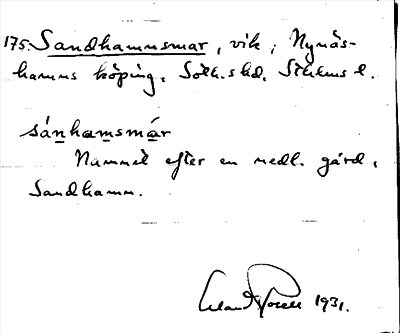 175. Sandhamnsmar, vik, Nynäs-
hamns köping. Sotk. skd. Sthlms l.
sánhamsmár
Namnet efter en nedl. gård,
Sandhamn.
1931.